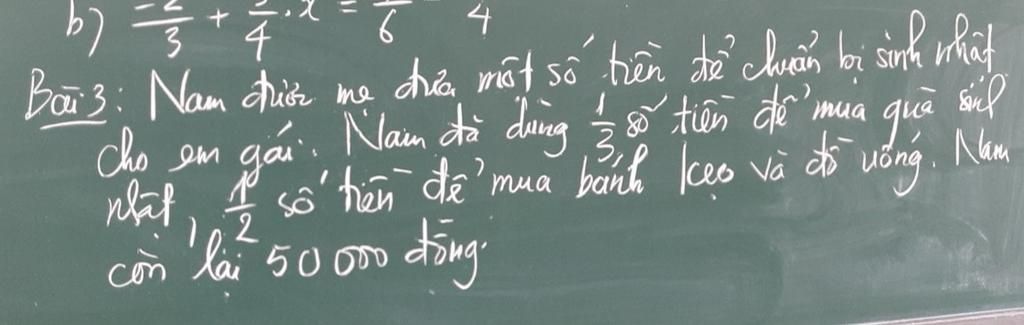 b) -2/3 + 3/4 . x = /6 4
Bài 3: Nam được mẹ đưa một số tiền để chuẩn bị sinh nhật
cho em gái. Nam đã dùng 1/3 số tiền để mua quà sinh
nhật, 1/2 số tiền để mua bánh kẹo và đồ uống. Nam
còn lại 50 000 đồng.